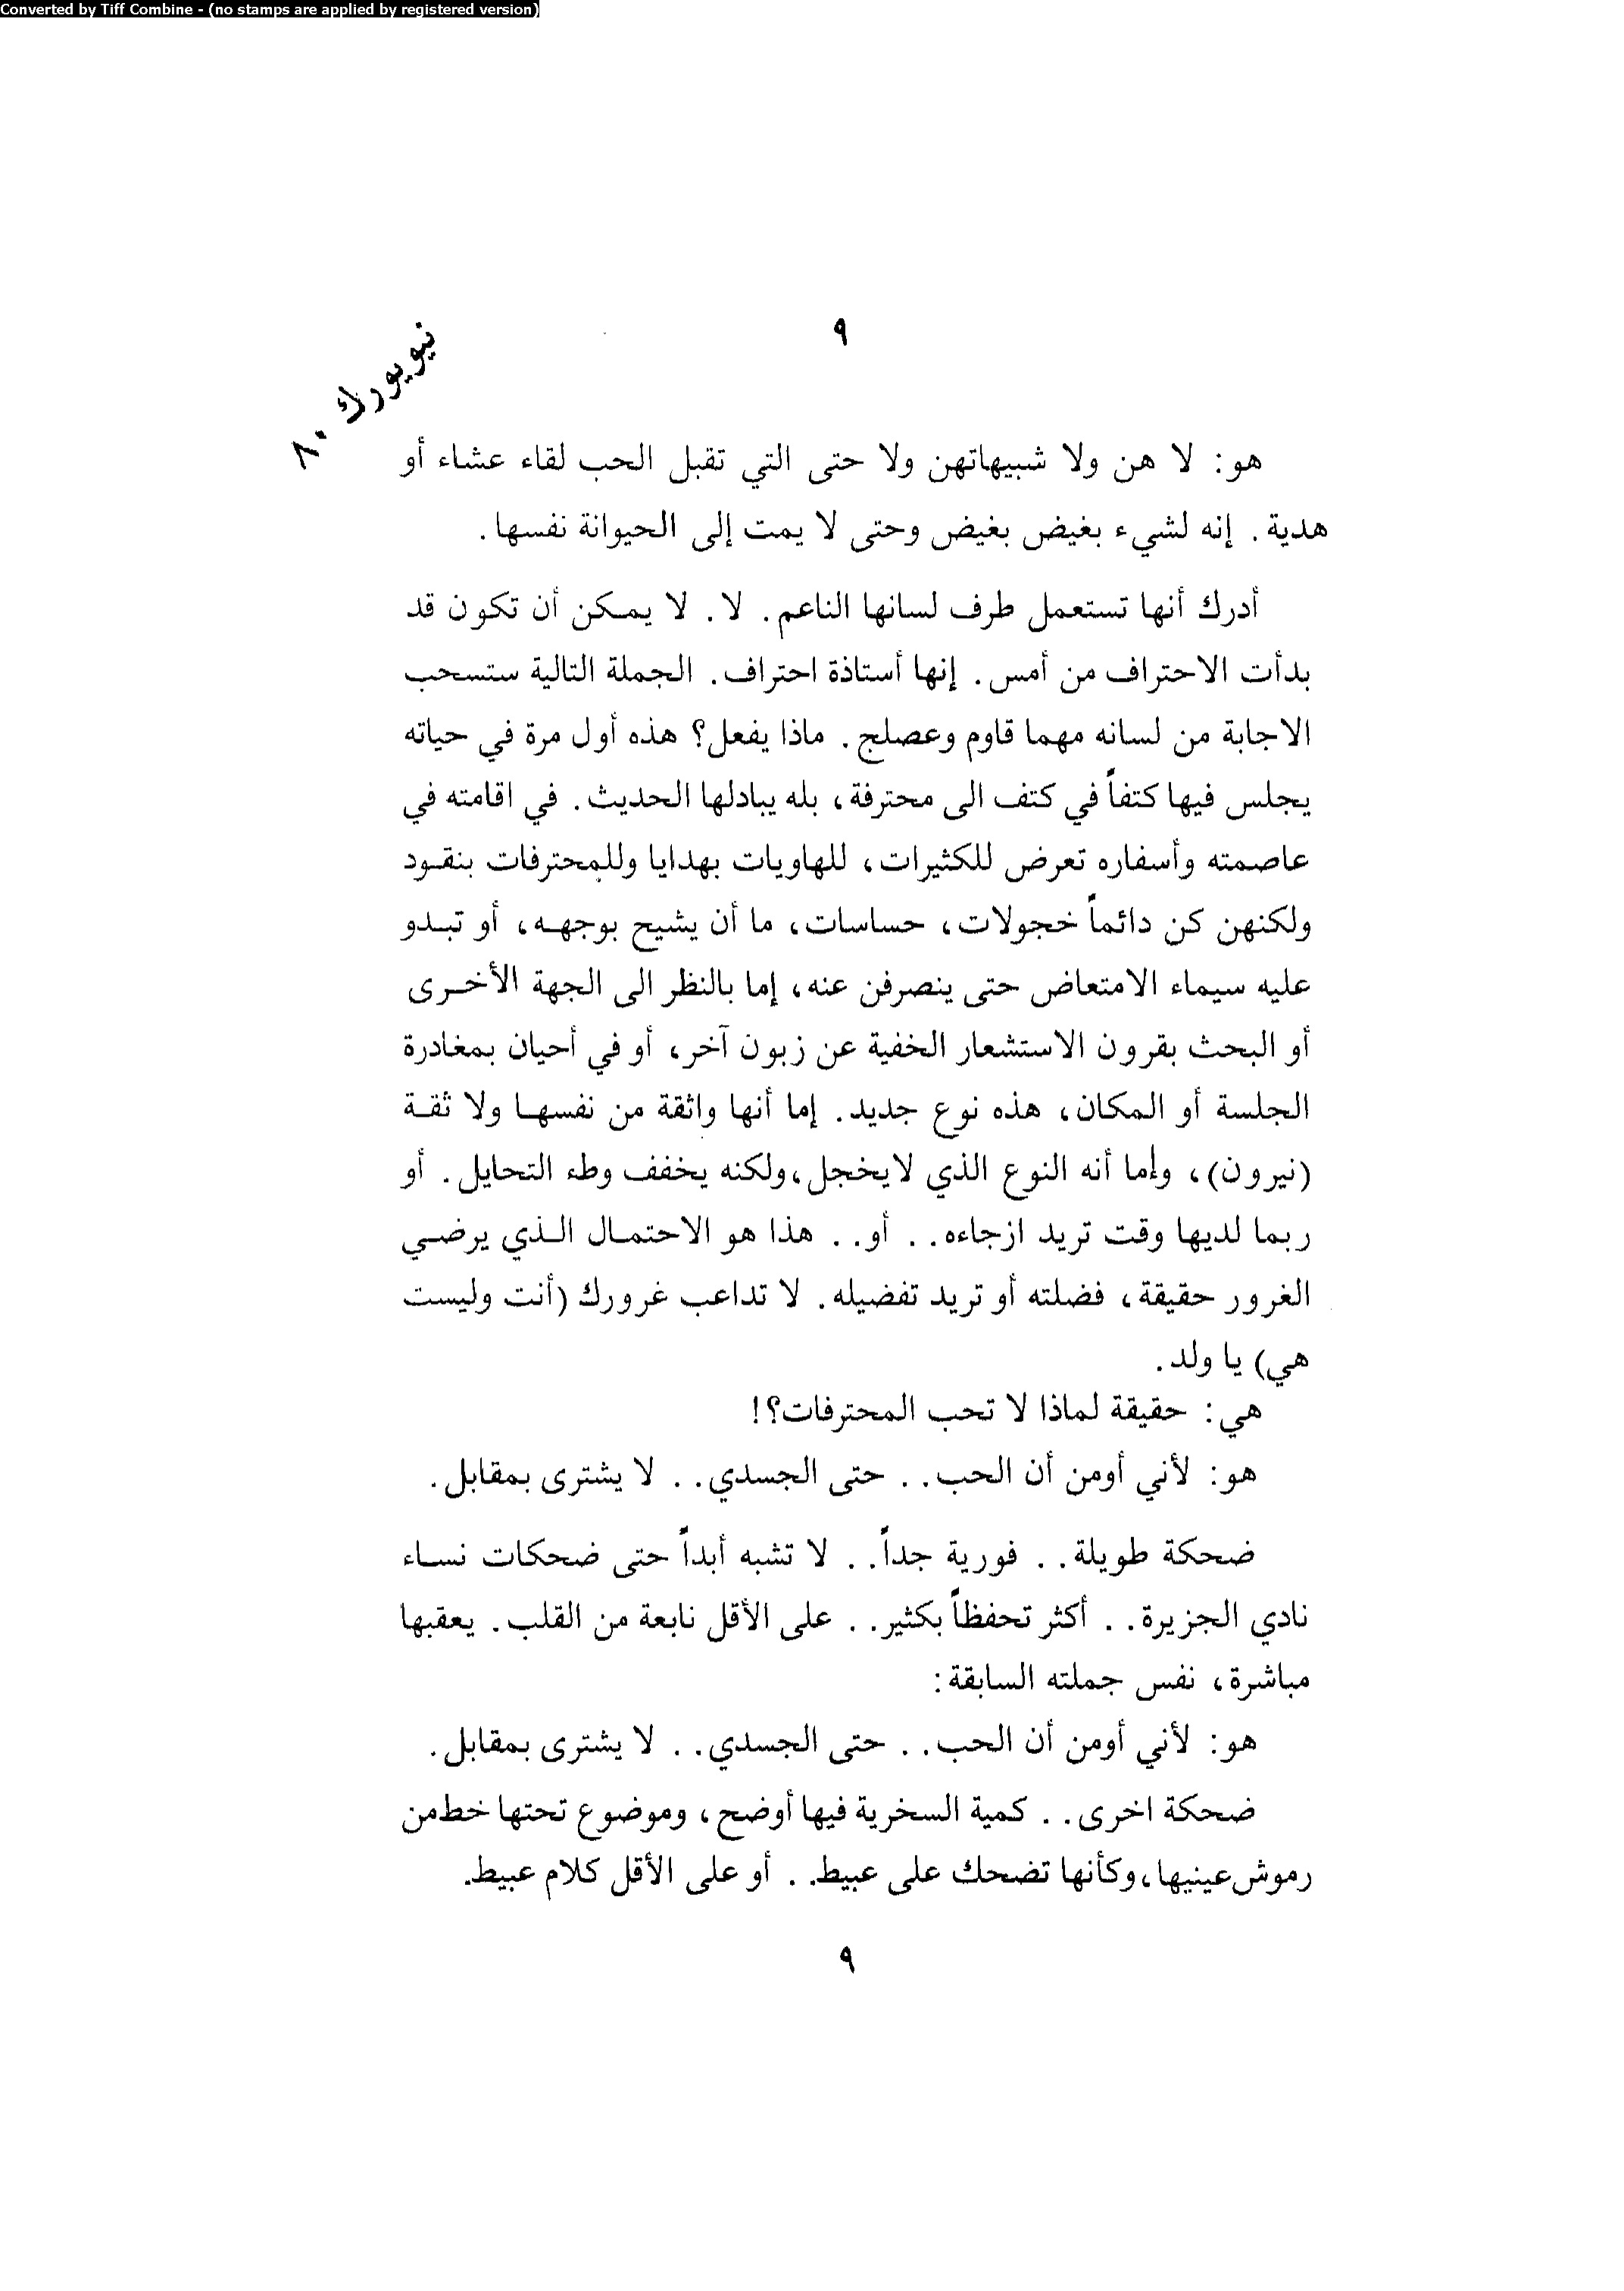 Converted by Tiff Combine - (no stamps are applied by registered version)
٩
نيويورك ٨٠
هو: لا هن ولا شبيهاتهن ولا حتى التي تقبل الحب لقاء عشاء أو
هدية. إنه لشيء بغيض بغيض وحتى لا يمت إلى الحيوانة نفسها.
أدرك أنها تستعمل طرف لسانها الناعم. لا. لا يمكن أن تكون قد
بدأت الاحتراف من أمس. إنها أستاذة احتراف. الجملة التالية ستسحب
الاجابة من لسانه مهما قاوم وعصلج. ماذا يفعل؟ هذه أول مرة في حياته
يجلس فيها كتفاً في كتف الى محترفة، بله يبادلها الحديث. في اقامته في
عاصمته وأسفاره تعرض للكثيرات، للهاويات بهدايا وللمحترفات بنقود
ولكنهن كن دائماً خجولات، حساسات، ما أن يشيح بوجهه، أو تبدو
عليه سيماء الامتعاض حتى ينصرفن عنه، إما بالنظر الى الجهة الأخرى
أو البحث بقرون الاستشعار الخفية عن زبون آخر، أو في أحيان بمغادرة
الجلسة أو المكان، هذه نوع جديد. إما أنها واثقة من نفسها ولا ثقة
(نيرون)، وأما أنه النوع الذي لايخجل، ولكنه يخفف وطء التحايل. أو
ربما لديها وقت تريد ازجاءه.. أو.. هذا هو الاحتمال الذي يرضي
الغرور حقيقة، فضلته أو تريد تفضيله. لا تداعب غرورك (أنت وليست
هي) يا ولد.
هي: حقيقة لماذا لا تحب المحترفات؟!
هو: لأني أومن أن الحب.. حتى الجسدي.. لا يشترى بمقابل.
ضحكة طويلة.. فورية جداً.. لا تشبه أبداً حتى ضحكات نساء
نادي الجزيرة.. أكثر تحفظاً بكثير.. على الأقل نابعة من القلب. يعقبها
مباشرة، نفس جملته السابقة:
هو: لأني أومن أن الحب.. حتى الجسدي.. لا يشترى بمقابل.
ضحكة اخرى.. كمية السخرية فيها أوضح، وموضوع تحتها خط من
رموش عينيها، وكأنها تضحك على عبيط.. أو على الأقل كلام عبيط.
٩